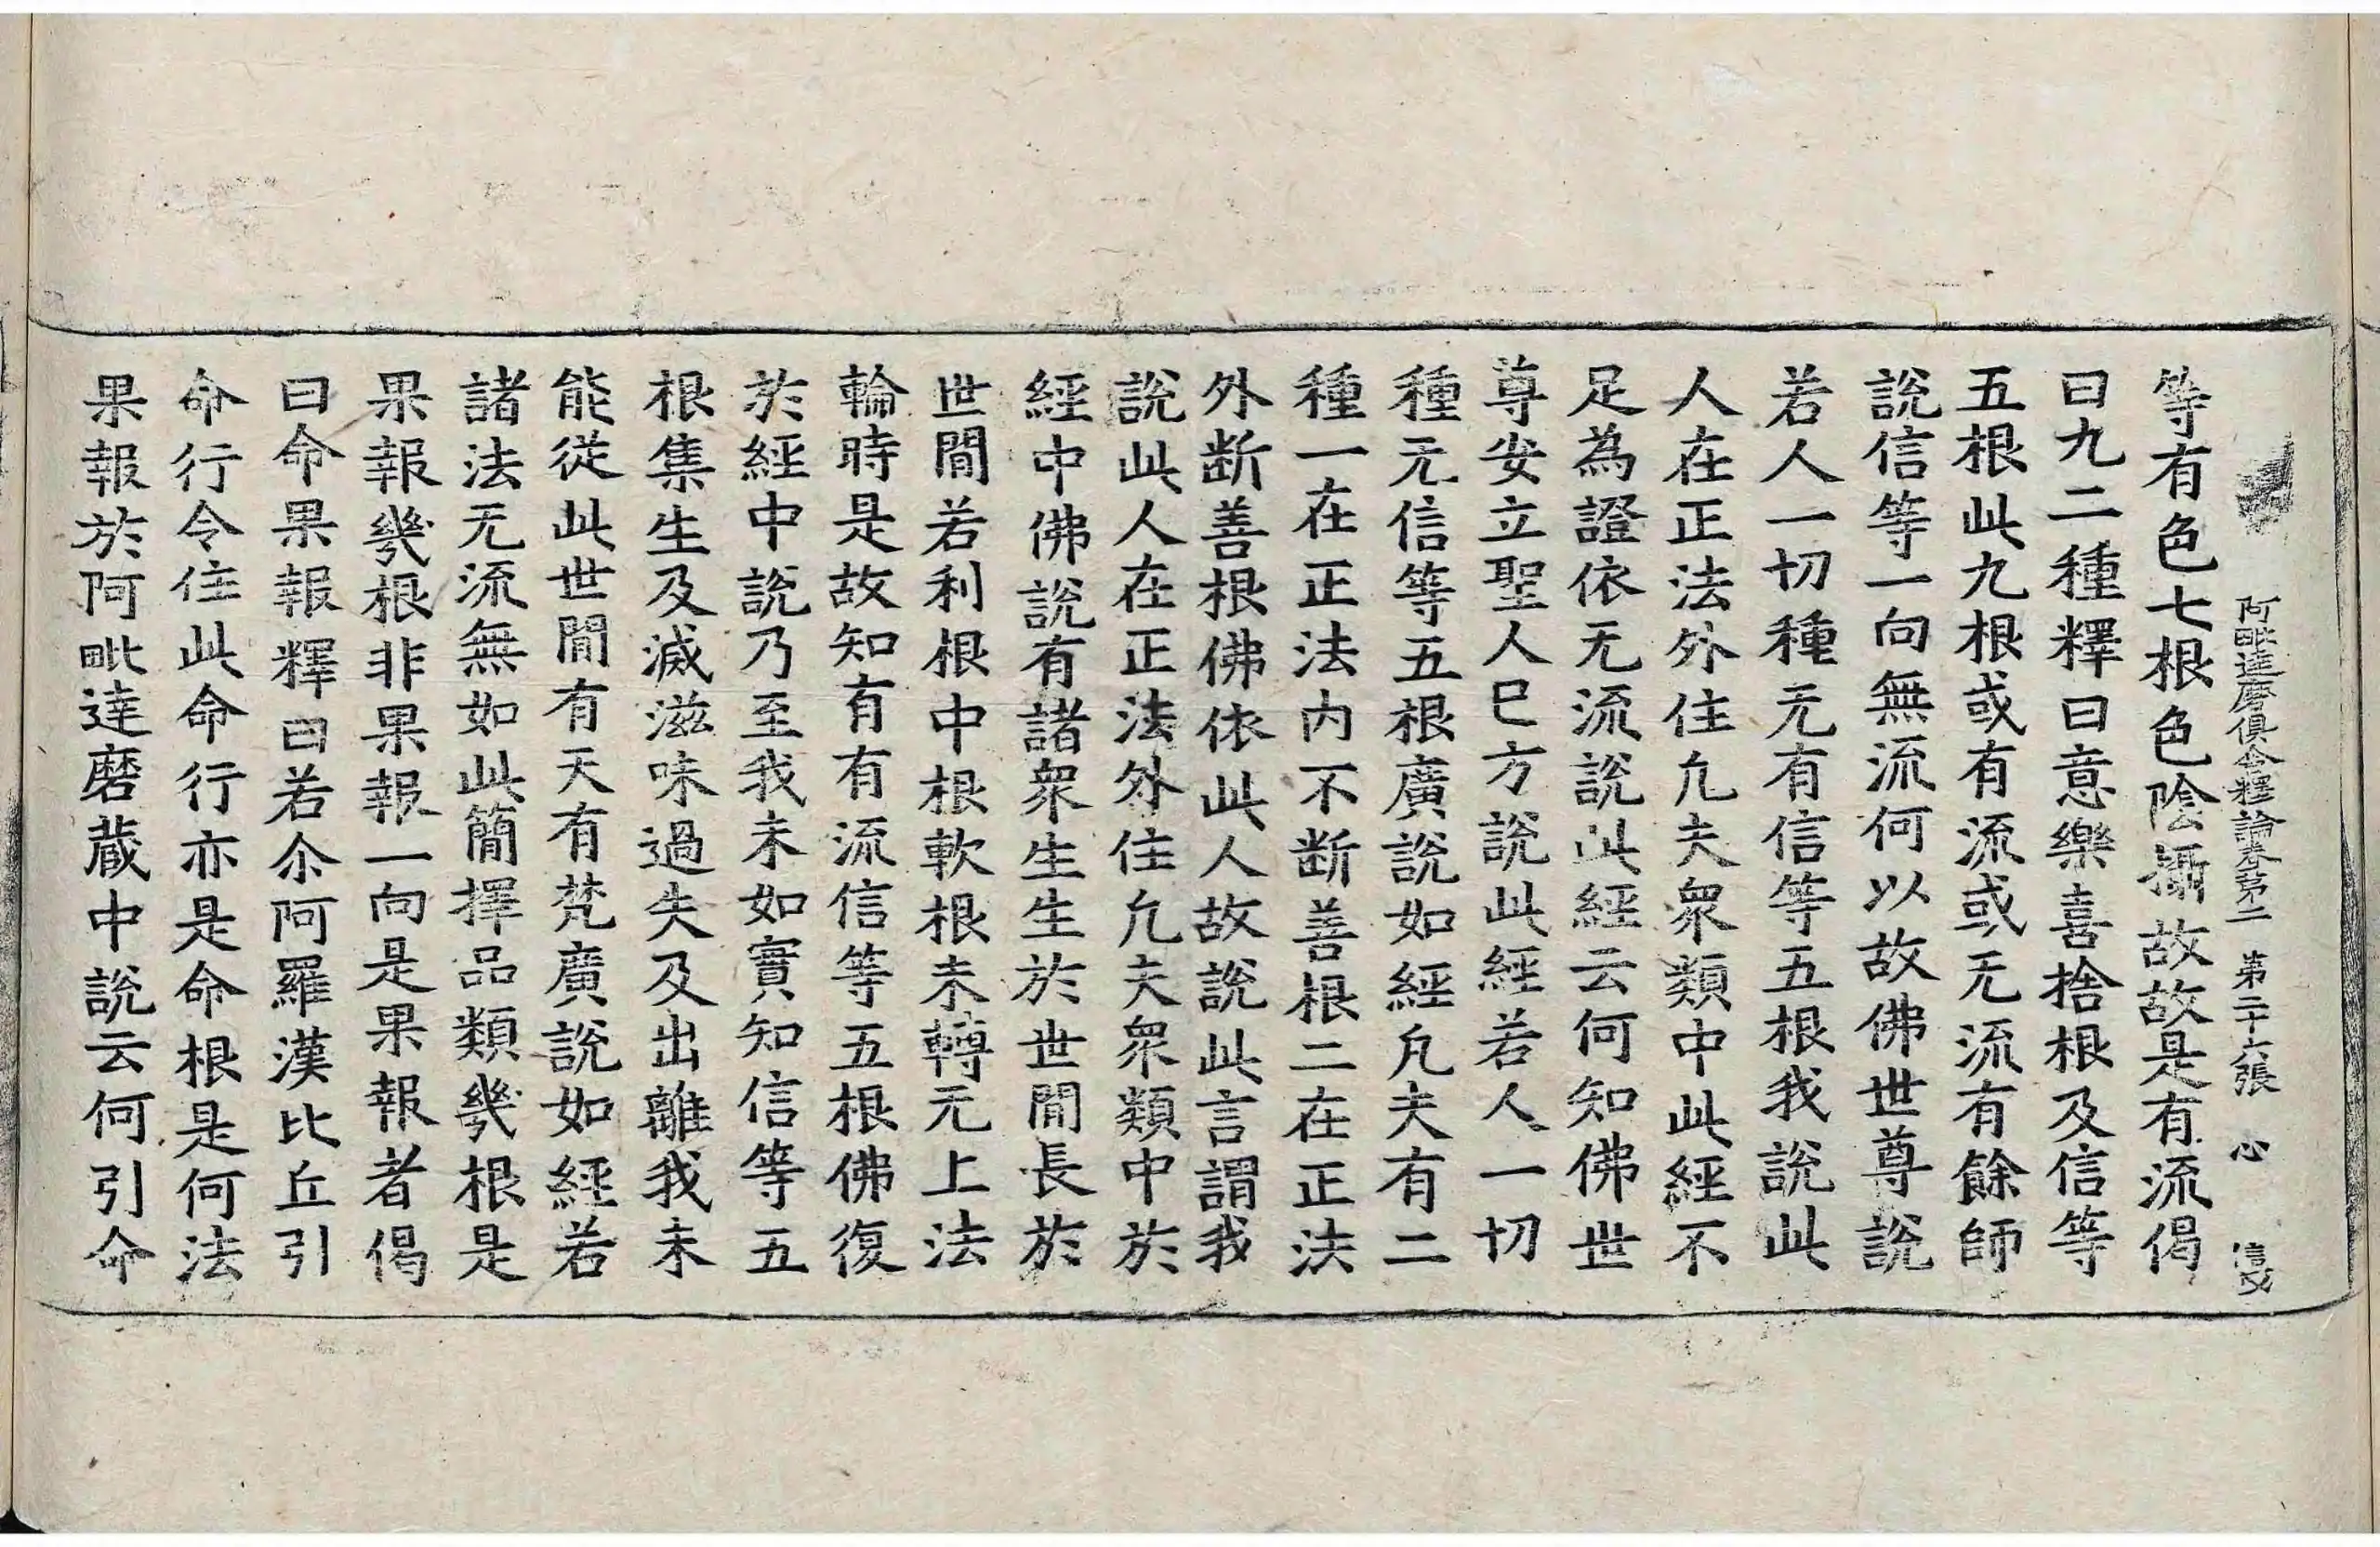 阿毗達磨俱舍釋論卷第二 第二十六張 心
等有色七根色陰攝故故是有流偈
曰九二種釋曰意樂喜捨根及信等
五根此九根或有流或无流有餘師
說信等一向無流何以故佛世尊說
若人一切種无有信等五根我說此
人在正法外住凢夫衆類中此經不
足為證依无流說此經云何知佛世
尊安立聖人已方說此經若人一切
種无信等五根廣說如經凢夫有二
種一在正法内不断善根二在正法
外断善根佛依此人故說此言謂我
說此人在正法外住凢夫衆類中於
經中佛說有諸衆生生於世間長於
世間若利根中根軟根未轉无上法
輪時是故知有有流信等五根佛復
於經中說乃至我未如實知信等五
根集生及滅滋味過失及出離我未
能從此世間有天有梵廣說如經若
諸法无流無如此簡擇品類幾根是
果報幾根非果報一向是果報者偈
曰命果報釋曰若尒阿羅漢比丘引
命行令住此命行亦是命根是何法
果報於阿毗達磨蔵中說云何引命